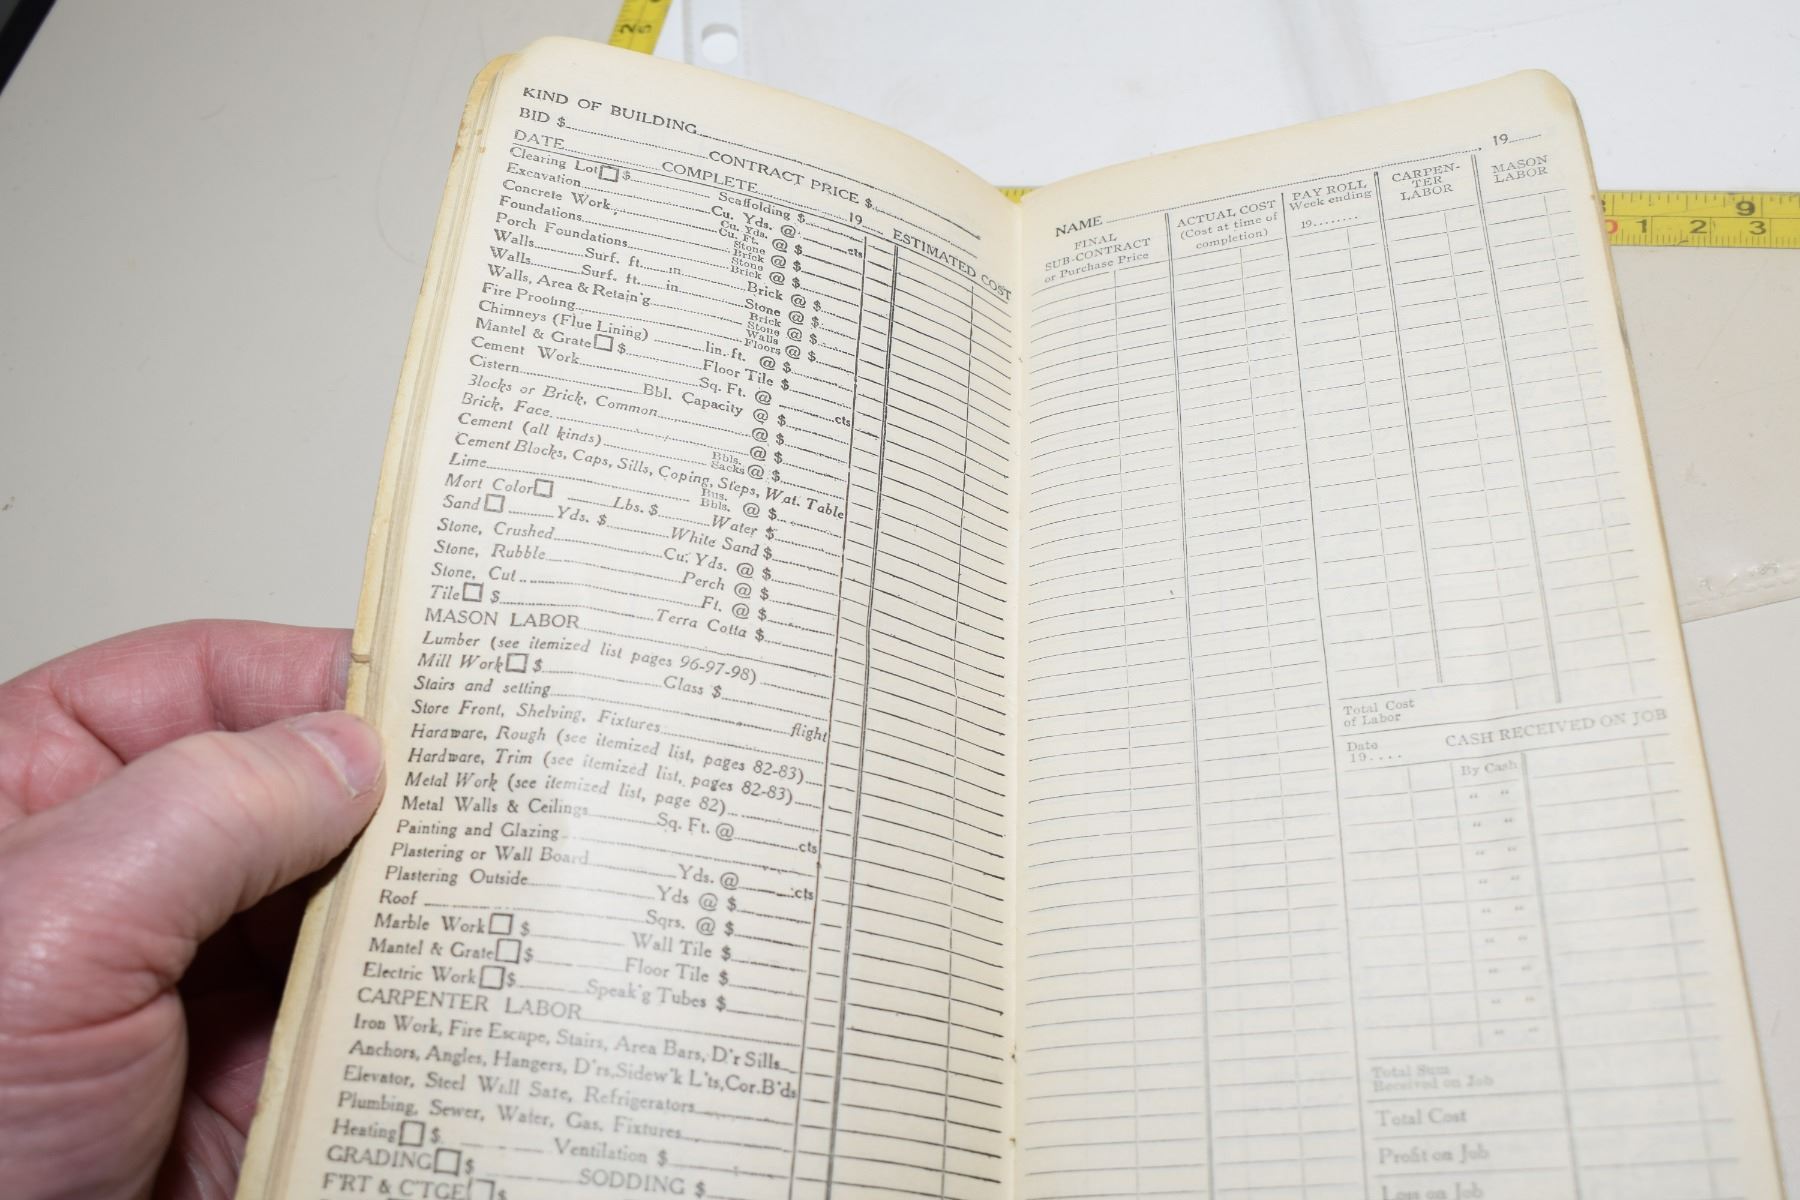 KIND OF BUILDING
BID $ CONTRACT PRICE $
DATE COMPLETE 19
ESTIMATED COST
Clearing Lot $ Scaffolding $
Excavation Cu. Yds. @ cts
Concrete Work Cu. Yds. Cu. Ft. @ $
Foundations Stone Brick @ $
Porch Foundations Stone Brick @ $
Walls Surf. ft. in. Brick @ $
Walls Surf. ft. in. Stone @ $
Walls, Area & Retain'g Brick Stone @ $
Fire Proofing Walls Floors @ $
Chimneys (Flue Lining) lin. ft. @ $
Mantel & Grate $ Floor Tile $
Cement Work Sq. Ft. @ cts
Cistern Bbl. Capacity @ $
Blocks or Brick, Common @ $
Brick, Face @ $
Cement (all kinds) Bbls. Sacks @ $
Cement Blocks, Caps, Sills, Coping, Steps, Wat. Table
Lime Bus. Bbls. @ $
Mort Color Lbs. $ Water $
Sand Yds. $ White Sand $
Stone, Crushed Cu. Yds. @ $
Stone, Rubble Perch @ $
Stone, Cut Ft. @ $
Tile $ Terra Cotta $
MASON LABOR
Lumber (see itemized list pages 96-97-98)
Mill Work $ Glass $
Stairs and setting flight
Store Front, Shelving, Fixtures
Hardware, Rough (see itemized list, pages 82-83)
Hardware, Trim (see itemized list, pages 82-83)
Metal Work (see itemized list, page 82)
Metal Walls & Ceilings Sq. Ft. @ cts
Painting and Glazing
Plastering or Wall Board Yds. @ cts
Plastering Outside Yds @ $
Roof Sqrs. @ $
Marble Work $ Wall Tile $
Mantel & Grate $ Floor Tile $
Electric Work $ Speak'g Tubes $
CARPENTER LABOR
Iron Work, Fire Escape, Stairs, Area Bars, D'r Sills
Anchors, Angles, Hangers, D'rs, Sidew'k L'ts, Cor. B'ds
Elevator, Steel Wall Safe, Refrigerators
Plumbing, Sewer, Water, Gas, Fixtures
Heating $ Ventilation $
GRADING $ SODDING $
F'RT & CTGE $
NAME 19
FINAL
SUB-CONTRACT
or Purchase Price
ACTUAL COST
(Cost at time of
completion)
PAY ROLL
Week ending
19
CARPEN-
TER
LABOR
MASON
LABOR
Total Cost
of Labor
CASH RECEIVED ON JOB
Date
19....
By Cash
" "
" "
" "
" "
" "
" "
" "
" "
" "
Total Sum
Received on Job
Total Cost
Profit on Job
Loss on Job
9
1 2 3